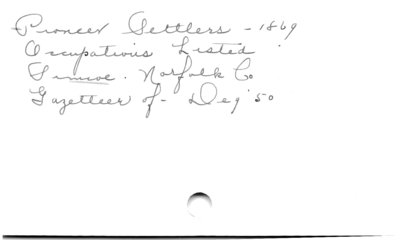 Pioneer Settlers - 1869
Occupations Listed
Simcoe. Norfolk Co
Gazetteer of - Deg '50